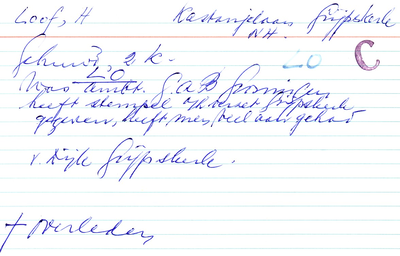 Loof, H Kastanjelaan Grijpskerke
NH. LO C
Gehuwd, 2 k.
LO
Was ambt. G.A.B. Groningen
heeft stempel v/h verzet Grijpskerk
gegeven, heeft mes veel aan gehad
v. Dijk Grijpskerke.
† overleden